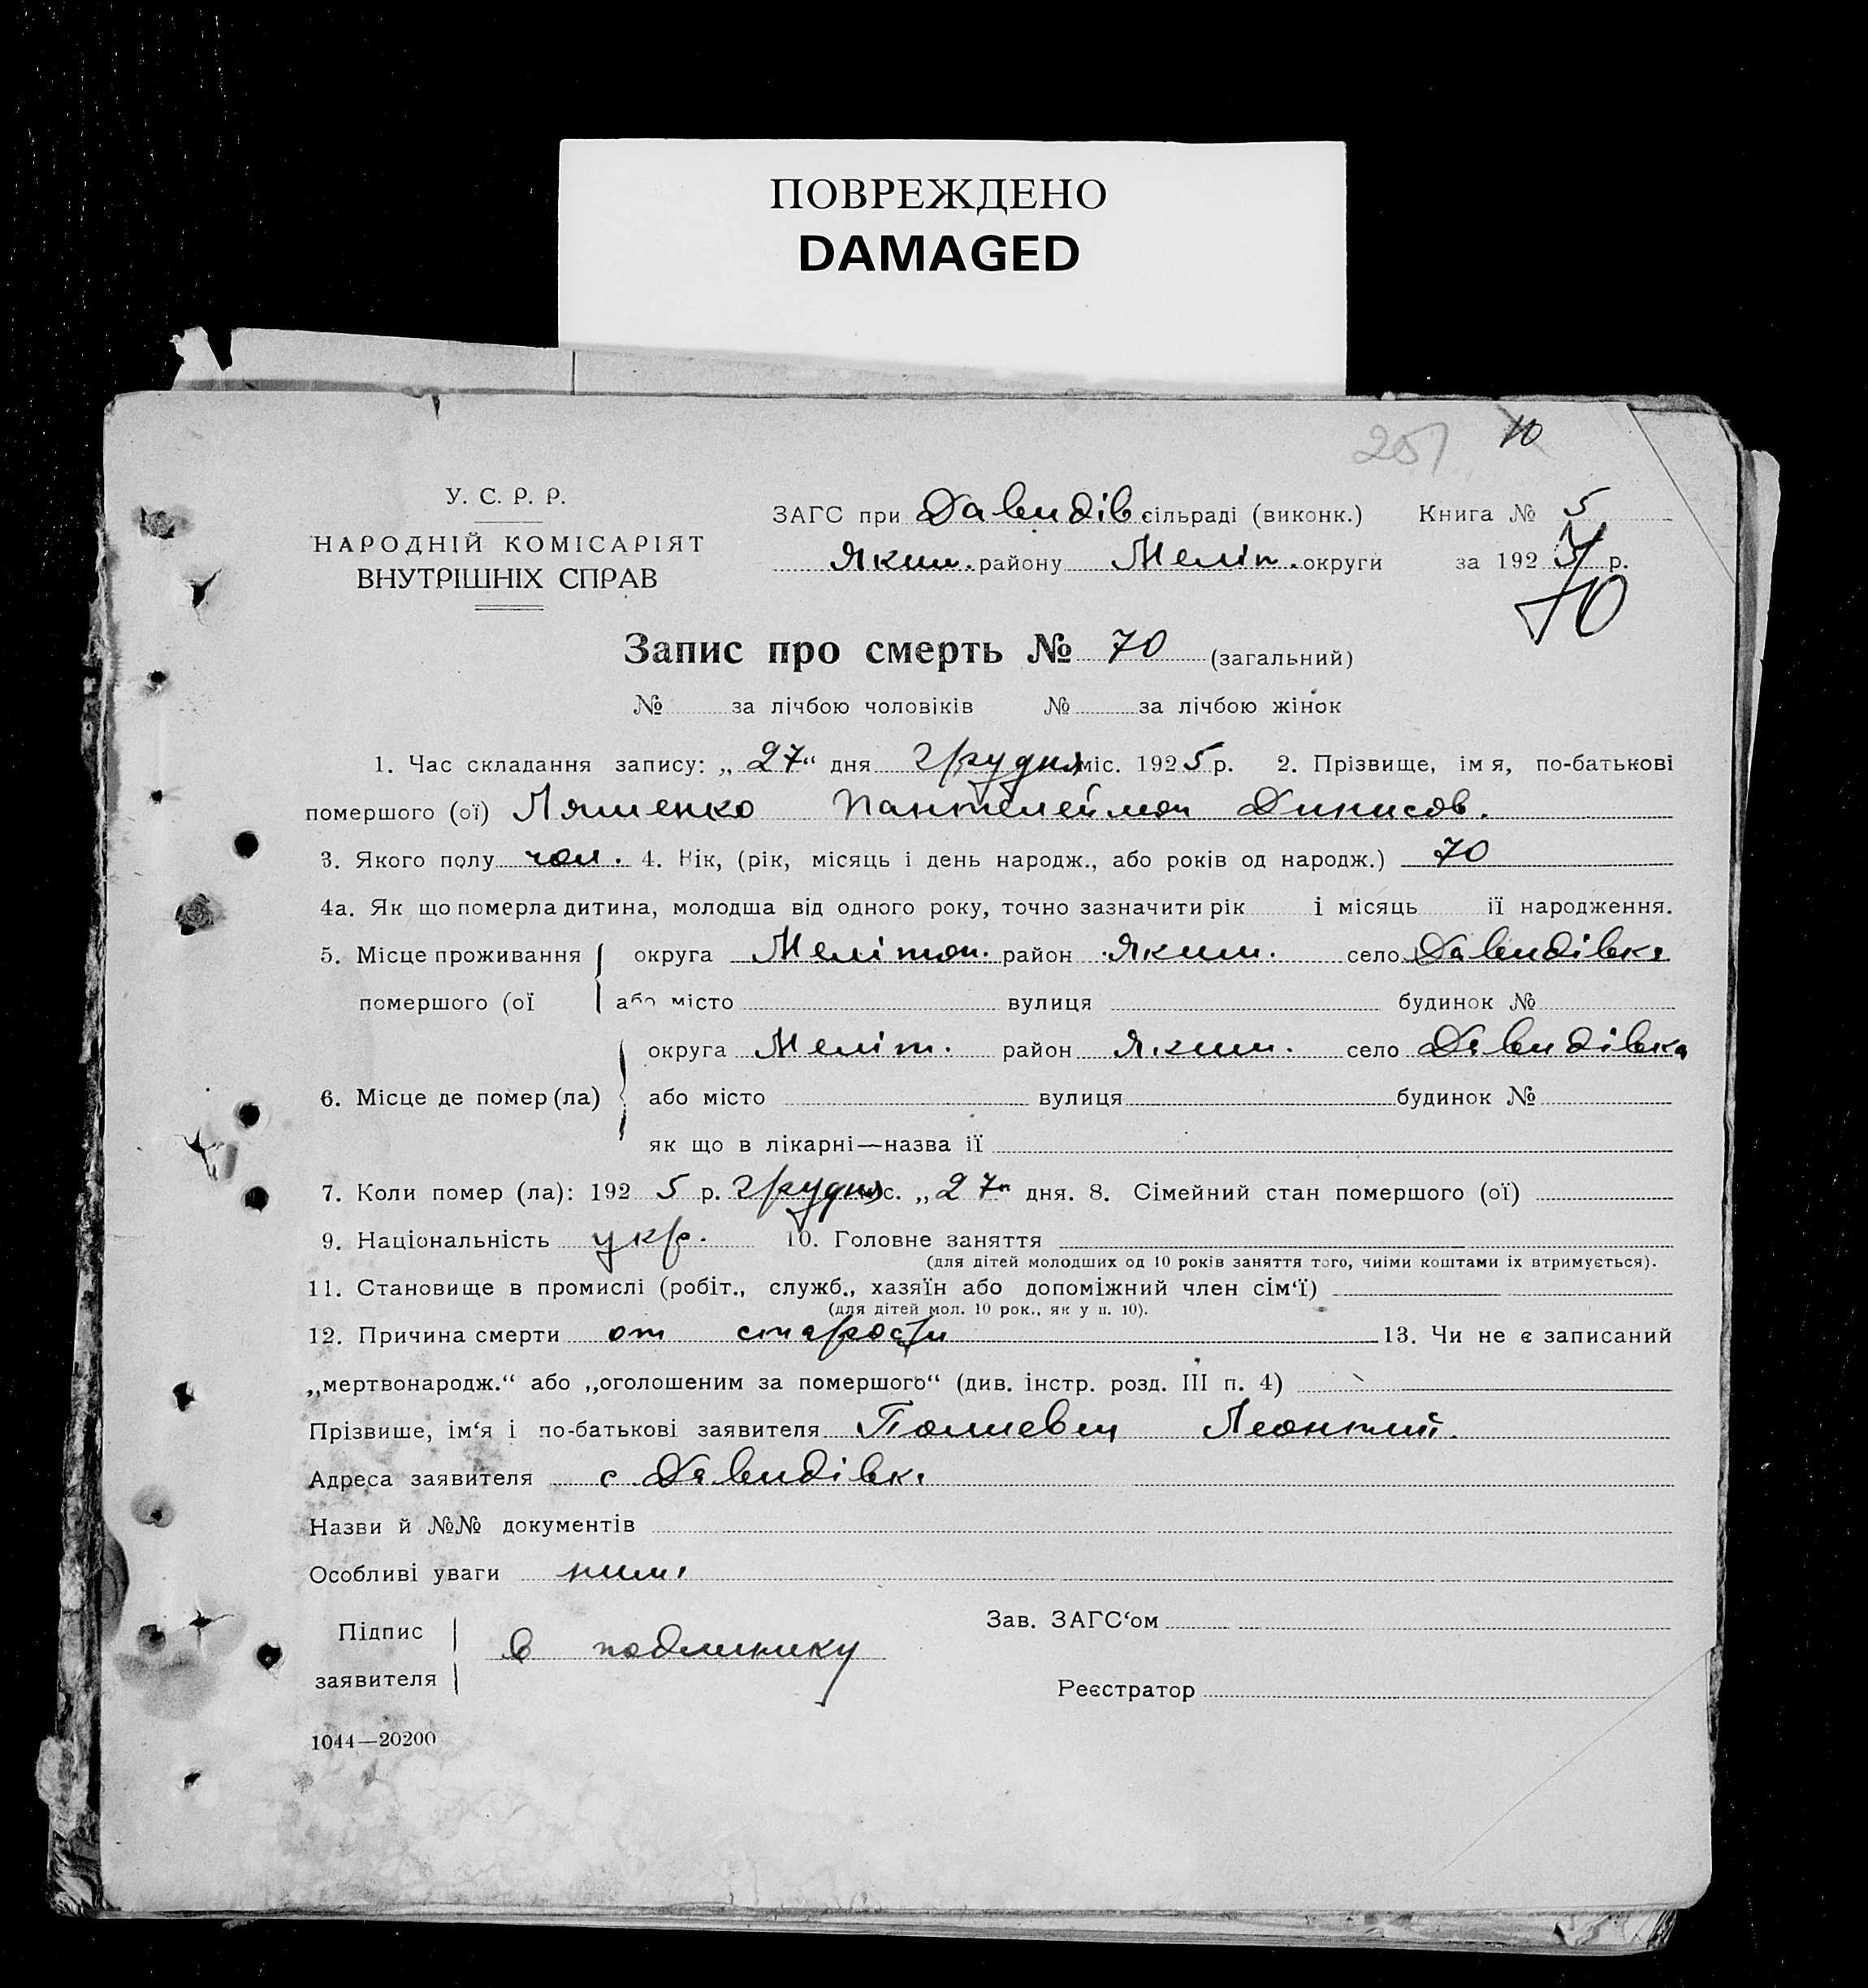 ПОВРЕЖДЕНО
DAMAGED
251 10
У. С. Р. Р.
НАРОДНІЙ КОМІСАРІЯТ
ВНУТРІШНІХ СПРАВ
ЗАГС при Давидів сільраді (виконк.) Книга № 5
Яким. району Меліт. округи за 1925 р.
70
Запис про смерть № 70 (загальний)
№ за лічбою чоловіків № за лічбою жінок
1. Час складання запису: „27“ дня грудня міс. 1925 р. 2. Прізвище, імя, по-батькові
помершого (ої) Ляшенко Пантелеймон Динисов.
3. Якого полу чол. 4. Вік, (рік, місяць і день народж., або років од народж.) 70
4а. Як що померла дитина, молодша від одного року, точно зазначити рік і місяць її народження.
5. Місце проживання округа Мелітоп. район Яким. село Давидівка
помершого (ої або місто вулиця будинок №
округа Меліт. район Яким. село Давидівка
6. Місце де помер (ла) або місто вулиця будинок №
як що в лікарні—назва її
7. Коли помер (ла): 1925 р. грудня міс. „27“ дня. 8. Сімейний стан помершого (ої)
9. Національність укр. 10. Головне заняття
(для дітей молодших од 10 років заняття того, чиїми коштами їх втримується).
11. Становище в промислі (робіт., служб., хазяїн або допоміжний член сім‘ї)
(для дітей мол. 10 рок., як у п. 10).
12. Причина смерти от старости 13. Чи не є записаний
„мертвонародж.“ або „оголошеним за помершого“ (див. інстр. розд. III п. 4)
Прізвише, ім‘я і по-батькові заявителя Леонтий.
Адреса заявителя с Давидівка
Назви й №№ документів
Особливі уваги
Підпис
заявителя в подлинику
Зав. ЗАГС‘ом
Реєстратор
1044—20200